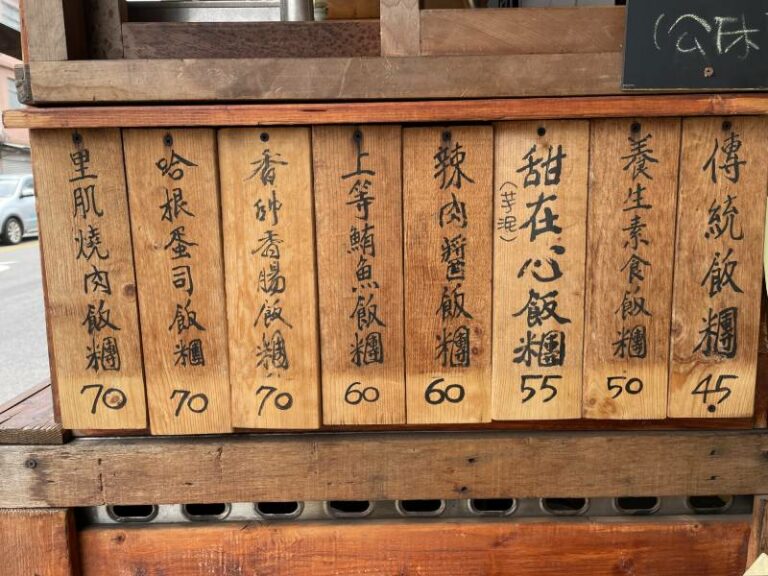 (公休
傳統飯糰 45
養生素食飯糰 50
甜在心飯糰 55
(芋泥)
辣肉醬飯糰 60
上等鮪魚飯糰 60
香帥香腸飯糰 70
哈根蛋司飯糰 70
里肌燒肉飯糰 70